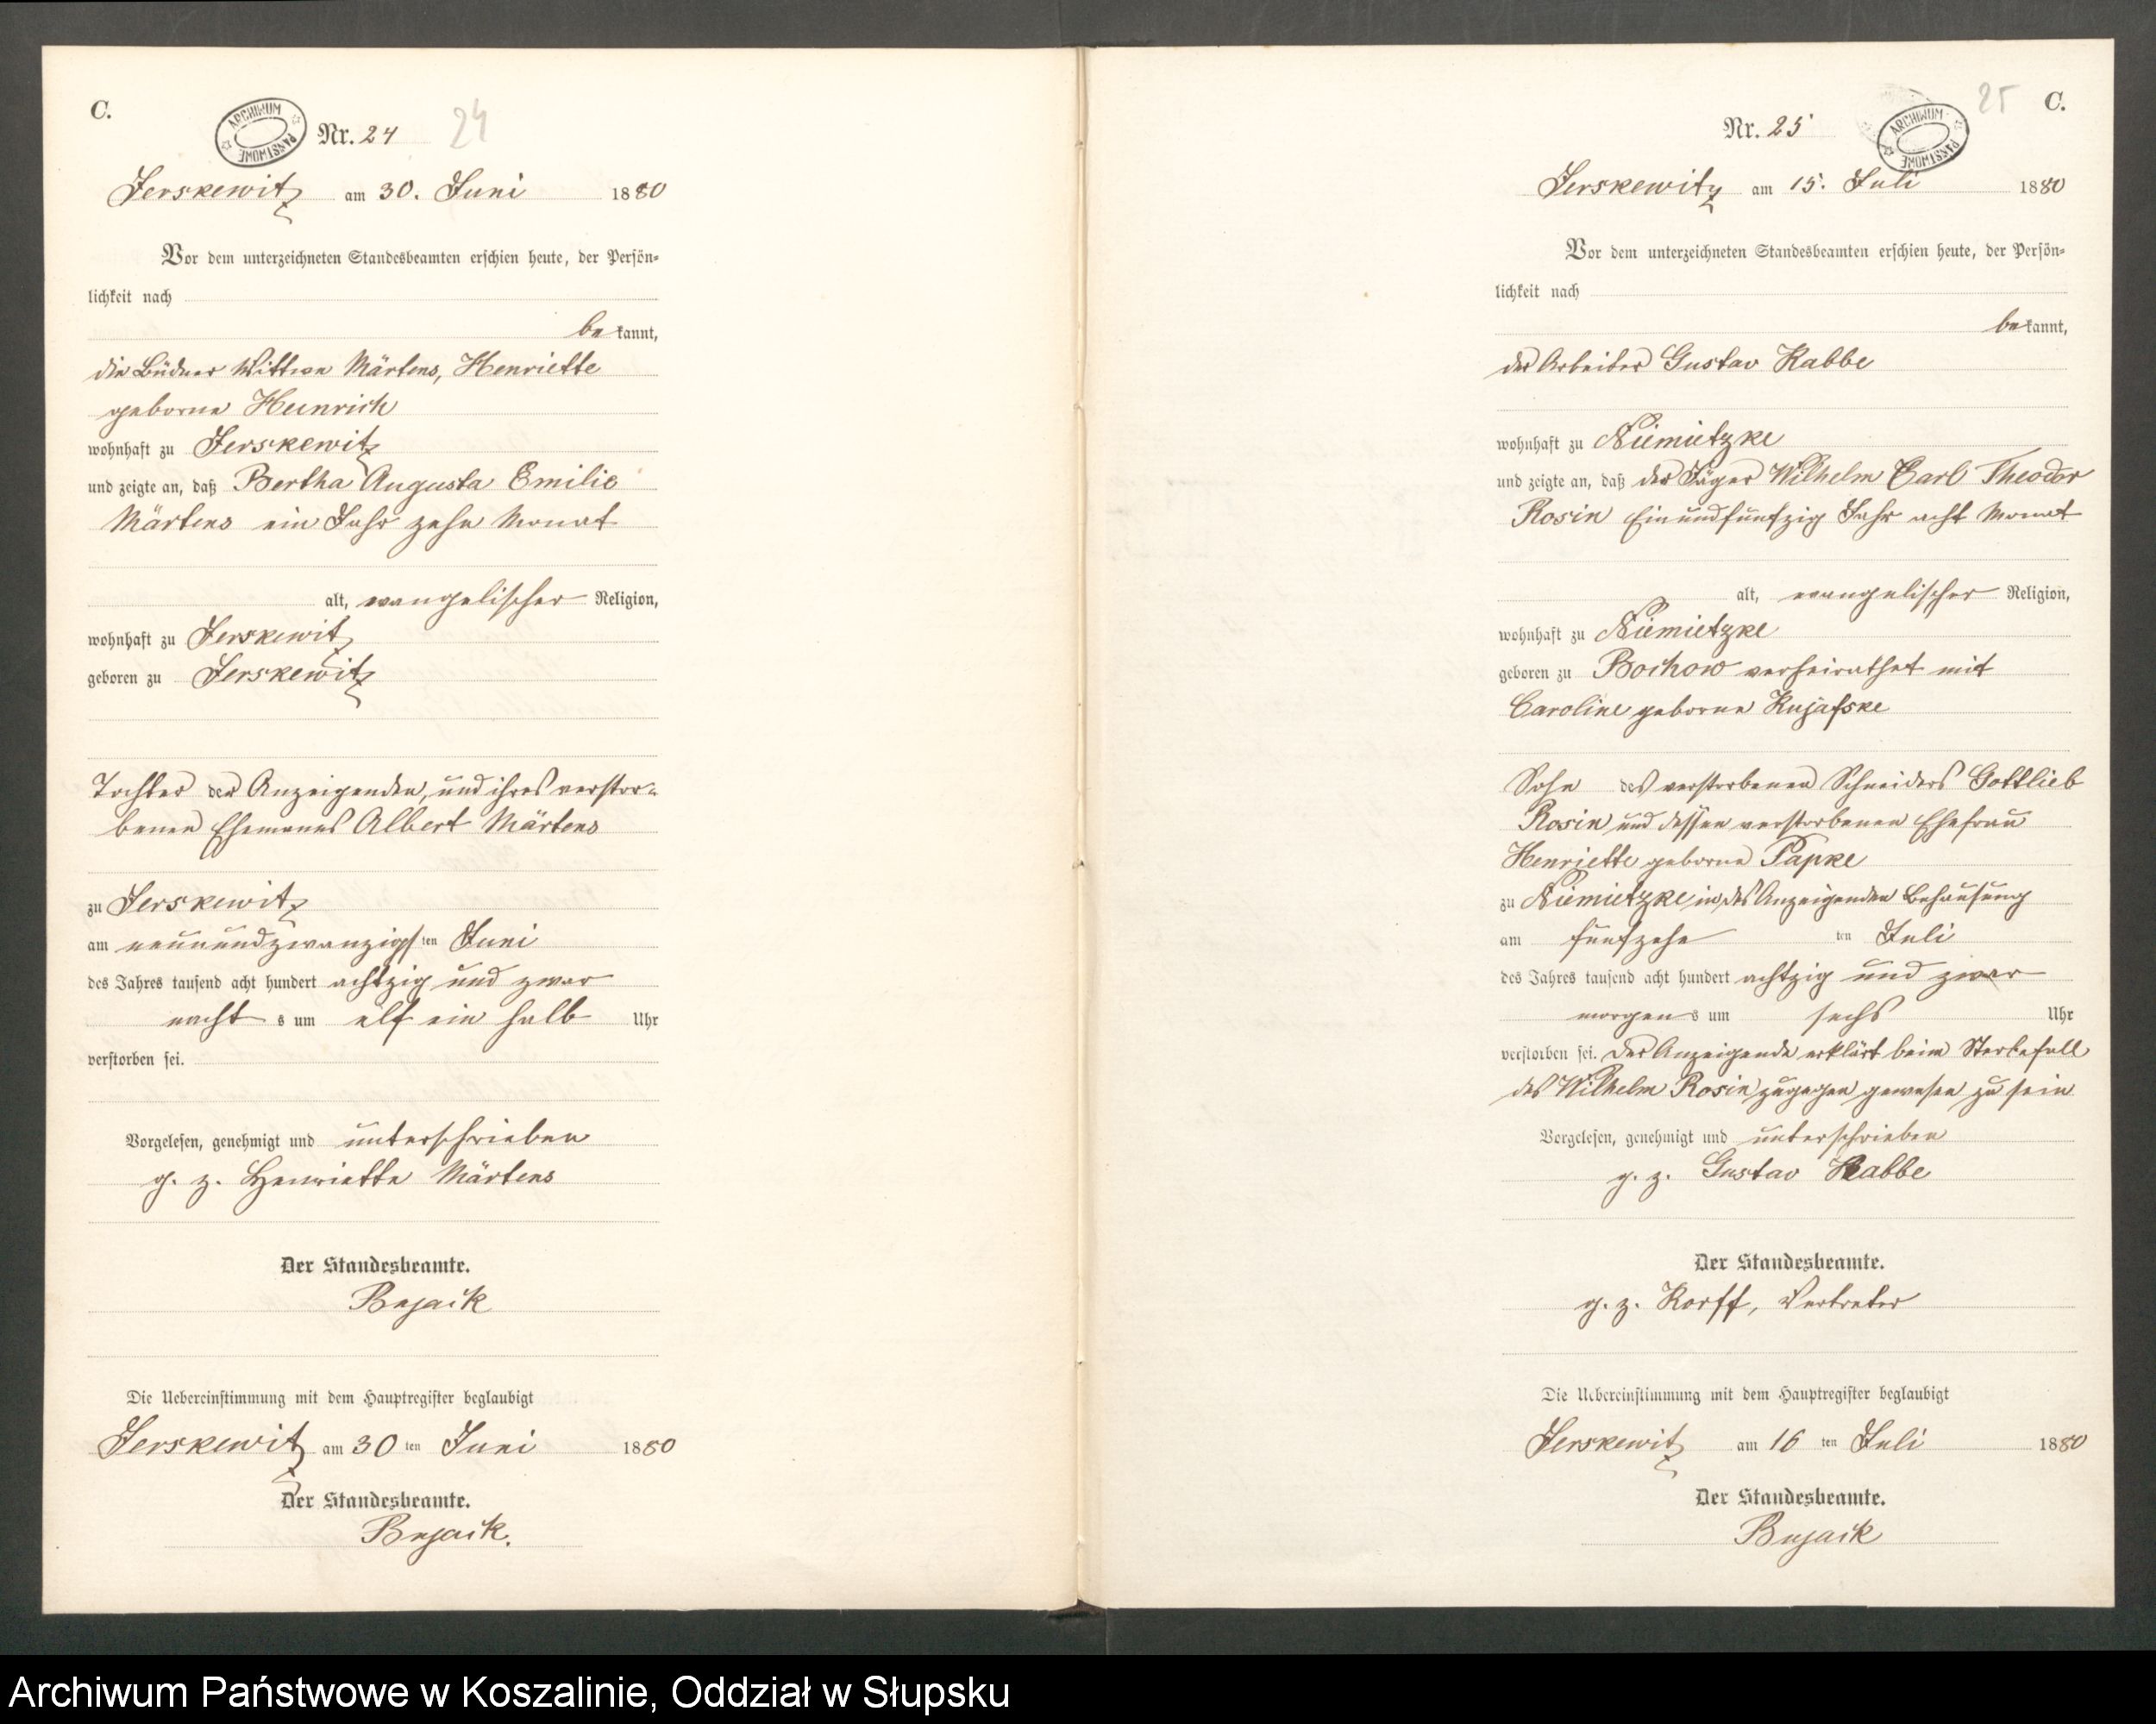 C.
ARCHIWUM PAŃSTWOWE
Nr. 24
24
Jerskewitz am 30. Juni 1880
Vor dem unterzeichneten Standesbeamten erschien heute, der Persön-
lichkeit nach
be kannt,
die Büdner Wittwe Märtens, Henriette
geborne Heinrich
wohnhaft zu Jerskewitz
und zeigte an, daß Bertha Augusta Emilie
Märtens ein Jahr zehn Monat
alt, evangelischer Religion,
wohnhaft zu Jerskewitz
geboren zu Jerskewitz
Tochter der Anzeigenden, und ihres verstor-
benen Ehemanns Albert Märtens
zu Jerskewitz
am neunundzwanzigsten Juni
des Jahres tausend acht hundert achtzig und zwar
nacht s um elf ein halb Uhr
verstorben sei.
Vorgelesen, genehmigt und unterschrieben
g. z. Henriette Märtens
Der Standesbeamte.
Bujack
Die Uebereinstimmung mit dem Hauptregister beglaubigt
Jerskewitz am 30 ten Juni 1880
Der Standesbeamte.
Bujack.
25
C.
ARCHIWUM PAŃSTWOWE
Nr. 25
Jerskewitz am 15. Juli 1880
Vor dem unterzeichneten Standesbeamten erschien heute, der Persön-
lichkeit nach
be kannt,
der Arbeiter Gustav Rabbe
wohnhaft zu Niemietzke
und zeigte an, daß der Jäger Wilhelm Carl Theodor
Rosin Einundfünfzig Jahr acht Monat
alt, evangelischer Religion,
wohnhaft zu Niemietzke
geboren zu Bochow verheirathet mit
Caroline geborne Kujafske
Sohn des verstorbenen Schneiders Gottlieb
Rosin und dessen verstorbenen Ehefrau
Henriette geborne Papke
zu Niemietzke in des Anzeigenden Behausung
am fünfzehn ten Juli
des Jahres tausend acht hundert achtzig und zwar
morgen s um sechs Uhr
verstorben sei. Der Anzeigende erklärt beim Sterbefall
des Wilhelm Rosin zugegen gewesen zu sein
Vorgelesen, genehmigt und unterschrieben
g. z. Gustav Rabbe
Der Standesbeamte.
g. z. Korff, Vertreter
Die Uebereinstimmung mit dem Hauptregister beglaubigt
Jerskewitz am 16 ten Juli 1880
Der Standesbeamte.
Bujack
Archiwum Państwowe w Koszalinie, Oddział w Słupsku